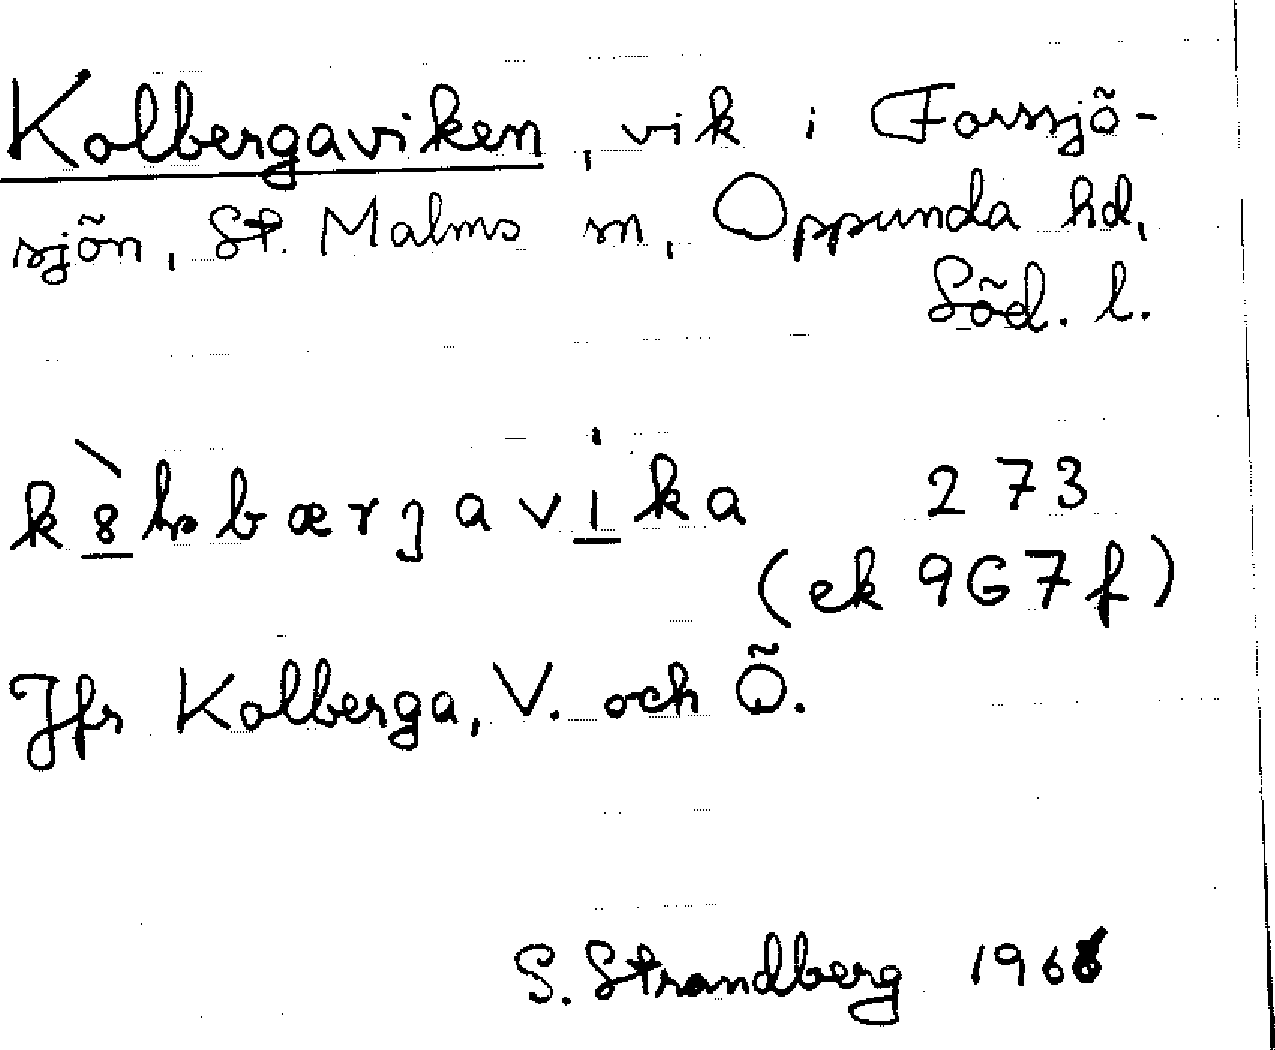 Kolbergaviken, vik i Forssjö-
sjön, St. Malms sn, Oppunda hd,
Söd. l.
273
(ek 967 f)
Jfr Kolberga, V. och Ö.
S. Strandberg 1966